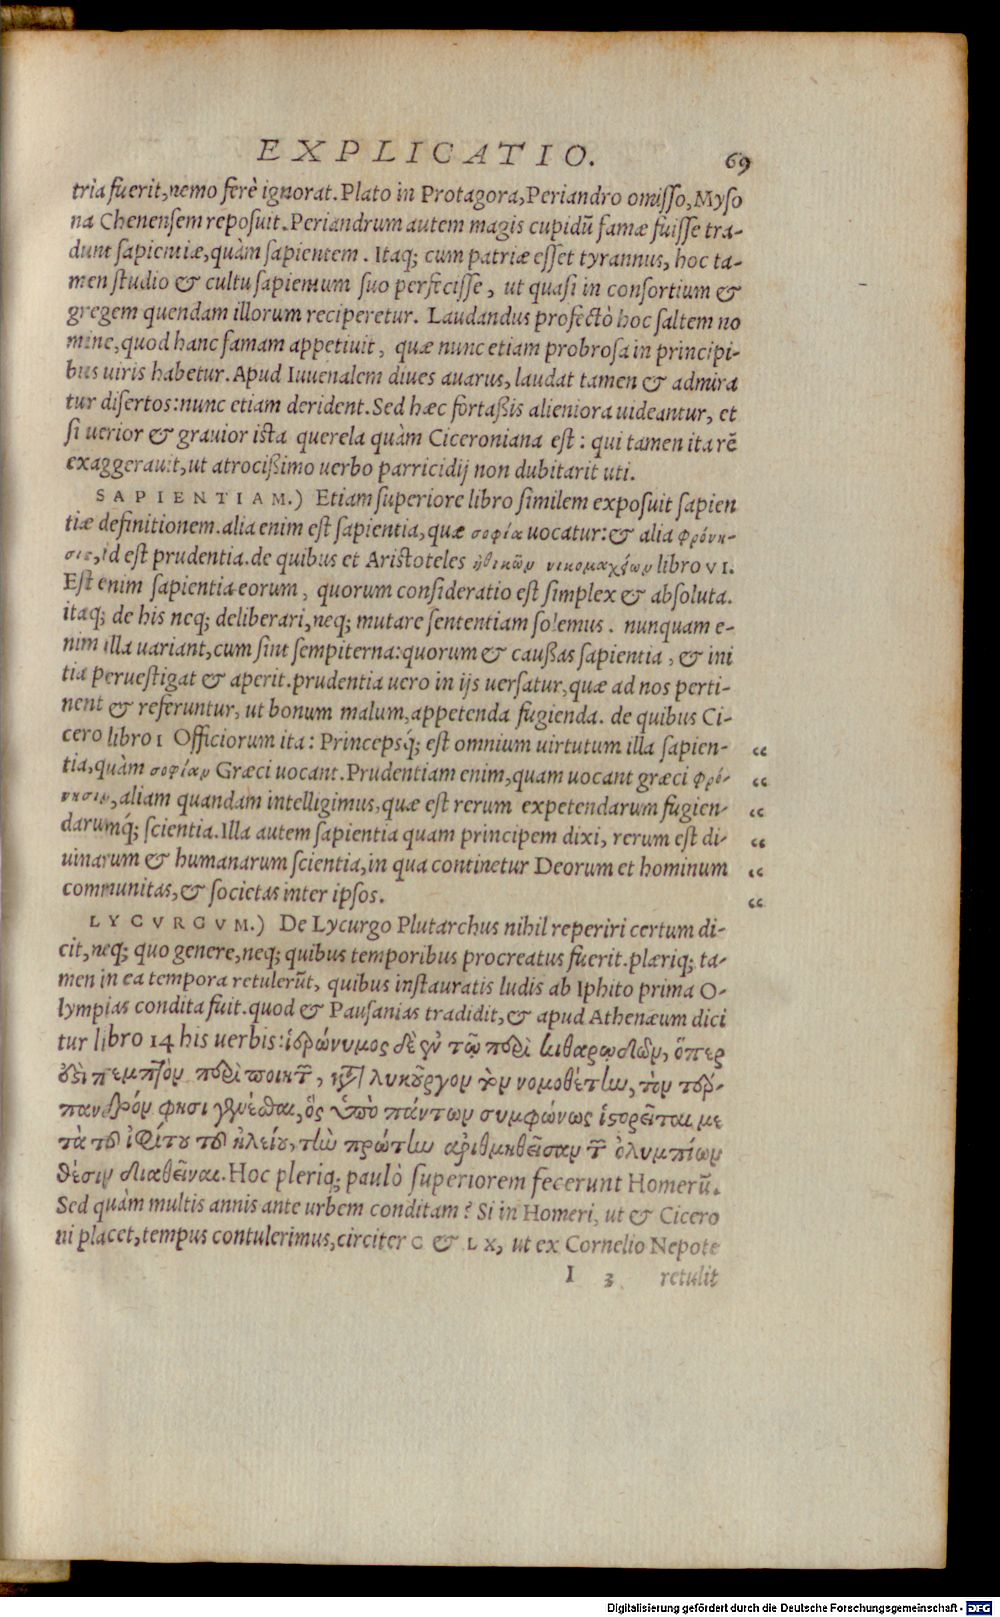 EXPLICATIO. 69
tria fuerit, nemo ferè ignorat. Plato in Protagora, Periandro omisso, Myso
na Chenensem reposuit. Periandrum autem magis cupidū famæ fuisse tra-
dunt sapientiæ, quàm sapientem. Itaq; cum patriæ esset tyrannus, hoc ta-
men studio & cultu sapientum suo perfecisse, ut quasi in consortium &
gregem quendam illorum reciperetur. Laudandus profectò hoc saltem no
mine, quod hanc famam appetiuit, quæ nunc etiam probrosa in principi-
bus uiris habetur. Apud Iuuenalem diues auarus, laudat tamen & admira
tur disertos: nunc etiam derident. Sed hæc fortaßis alieniora uideantur, et
si uerior & grauior ista querela quàm Ciceroniana est: qui tamen ita rē
exaggerauit, ut atrocißimo uerbo parricidij non dubitarit uti.
SAPIENTIAM.) Etiam superiore libro similem exposuit sapien
tiæ definitionem. alia enim est sapientia, quæ σοφία uocatur: & alia φρόνη-
σις, id est prudentia. de quibus et Aristoteles ἠθικῶν νικομαχείων libro VI.
Est enim sapientia eorum, quorum consideratio est simplex & absoluta.
itaq; de his neq; deliberari, neq; mutare sententiam solemus. nunquam e-
nim illa uariant, cum sint sempiterna: quorum & caußas sapientia, & ini
tia peruestigat & aperit. prudentia uero in ijs uersatur, quæ ad nos perti-
nent & referuntur, ut bonum malum, appetenda fugienda. de quibus Ci-
cero libro 1 Officiorum ita: Princepsq́; est omnium uirtutum illa sapien- “
tia, quàm σοφίαν Græci uocant. Prudentiam enim, quam uocant græci φρό- “
νησιν, aliam quandam intelligimus, quæ est rerum expetendarum fugien- “
darumq́; scientia. Illa autem sapientia quam principem dixi, rerum est di- “
uinarum & humanarum scientia, in qua continetur Deorum et hominum “
communitas, & societas inter ipsos. “
LYCVRGVM.) De Lycurgo Plutarchus nihil reperiri certum di-
cit, neq; quo genere, neq; quibus temporibus procreatus fuerit. plæriq; ta-
men in ea tempora retulerūt, quibus instauratis ludis ab Iphito prima O-
lympias condita fuit. quod & Pausanias tradidit, & apud Athenæum dici
tur libro 14 his uerbis: ἱερώνυμος δὲ ἐν τῷ περὶ κιθαρῳδῶν, ὅπερ
ἐςὶ πέμπτον περὶ ποιητῶν, κατὰ λυκοῦργον τὸν νομοθέτην, τὸν τέρ-
πανδρόν φησι γενέσθαι, ὃς ὑπὸ πάντων συμφώνως ἱςορεῖται με
τὰ τοῦ ἰφίτου τοῦ ἠλείου, τὴν πρώτην ἀριθμηθεῖσαν τῶν ὀλυμπίων
θέσιν διαθεῖναι. Hoc pleriq; paulò superiorem fecerunt Homerū.
Sed quàm multis annis ante urbem conditam? Si in Homeri, ut & Cicero
ni placet, tempus contulerimus, circiter C & LX, ut ex Cornelio Nepote
I 3 retulit
Digitalisierung gefördert durch die Deutsche Forschungsgemeinschaft - DFG